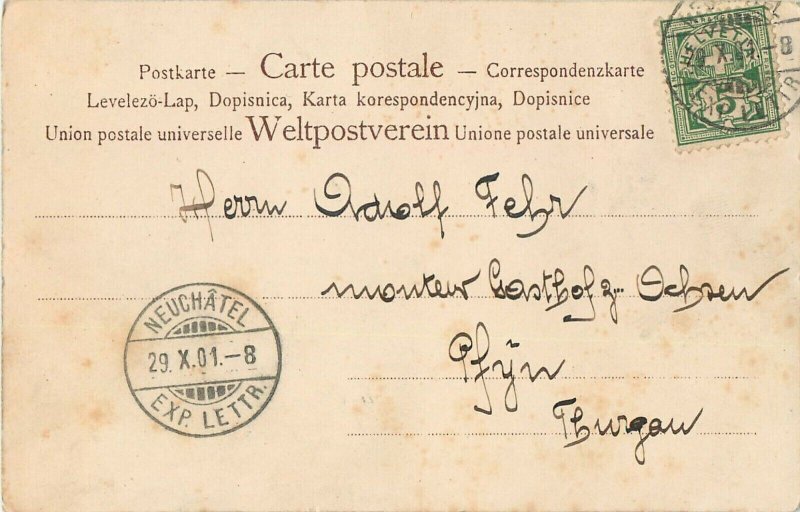 Postkarte — Carte postale — Correspondenzkarte
Levelező-Lap, Dopisnica, Karta korespondencyjna, Dopisnice
Union postale universelle Weltpostverein Unione postale universale
HELVETIA
5
8
Herrn Adolf Fehr
monteur Gasthof z. Ochsen
Pfÿn
Thurgau
NEUCHÂTEL
29. X. 01. – 8
EXP. LETTR.